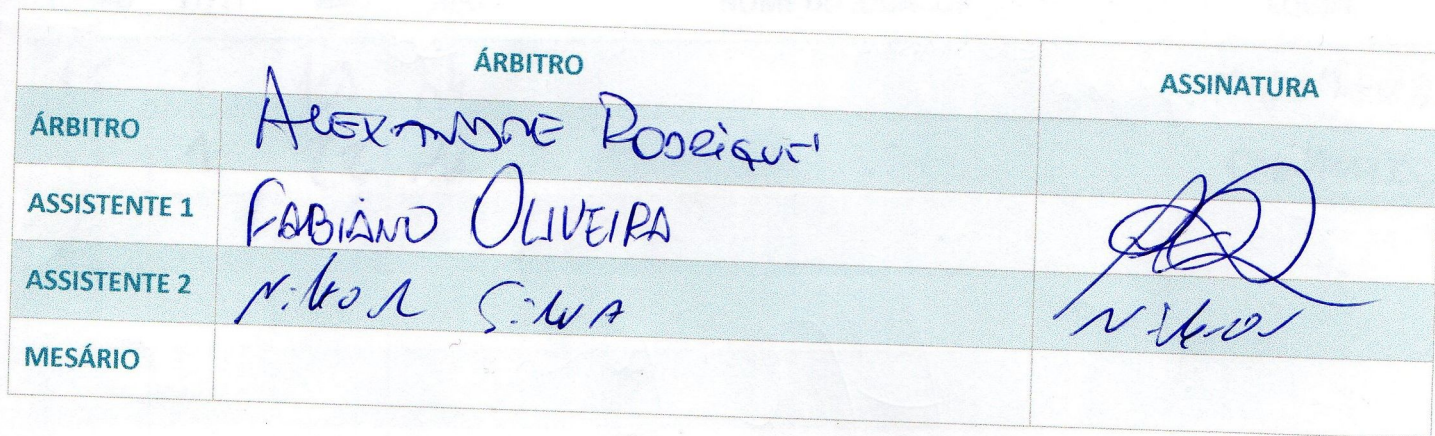 ÁRBITRO ASSINATURA
ÁRBITRO ALEXANDRE RODRIGUES
ASSISTENTE 1 FABIANO OLIVEIRA
ASSISTENTE 2 Nilton SILVA
MESÁRIO